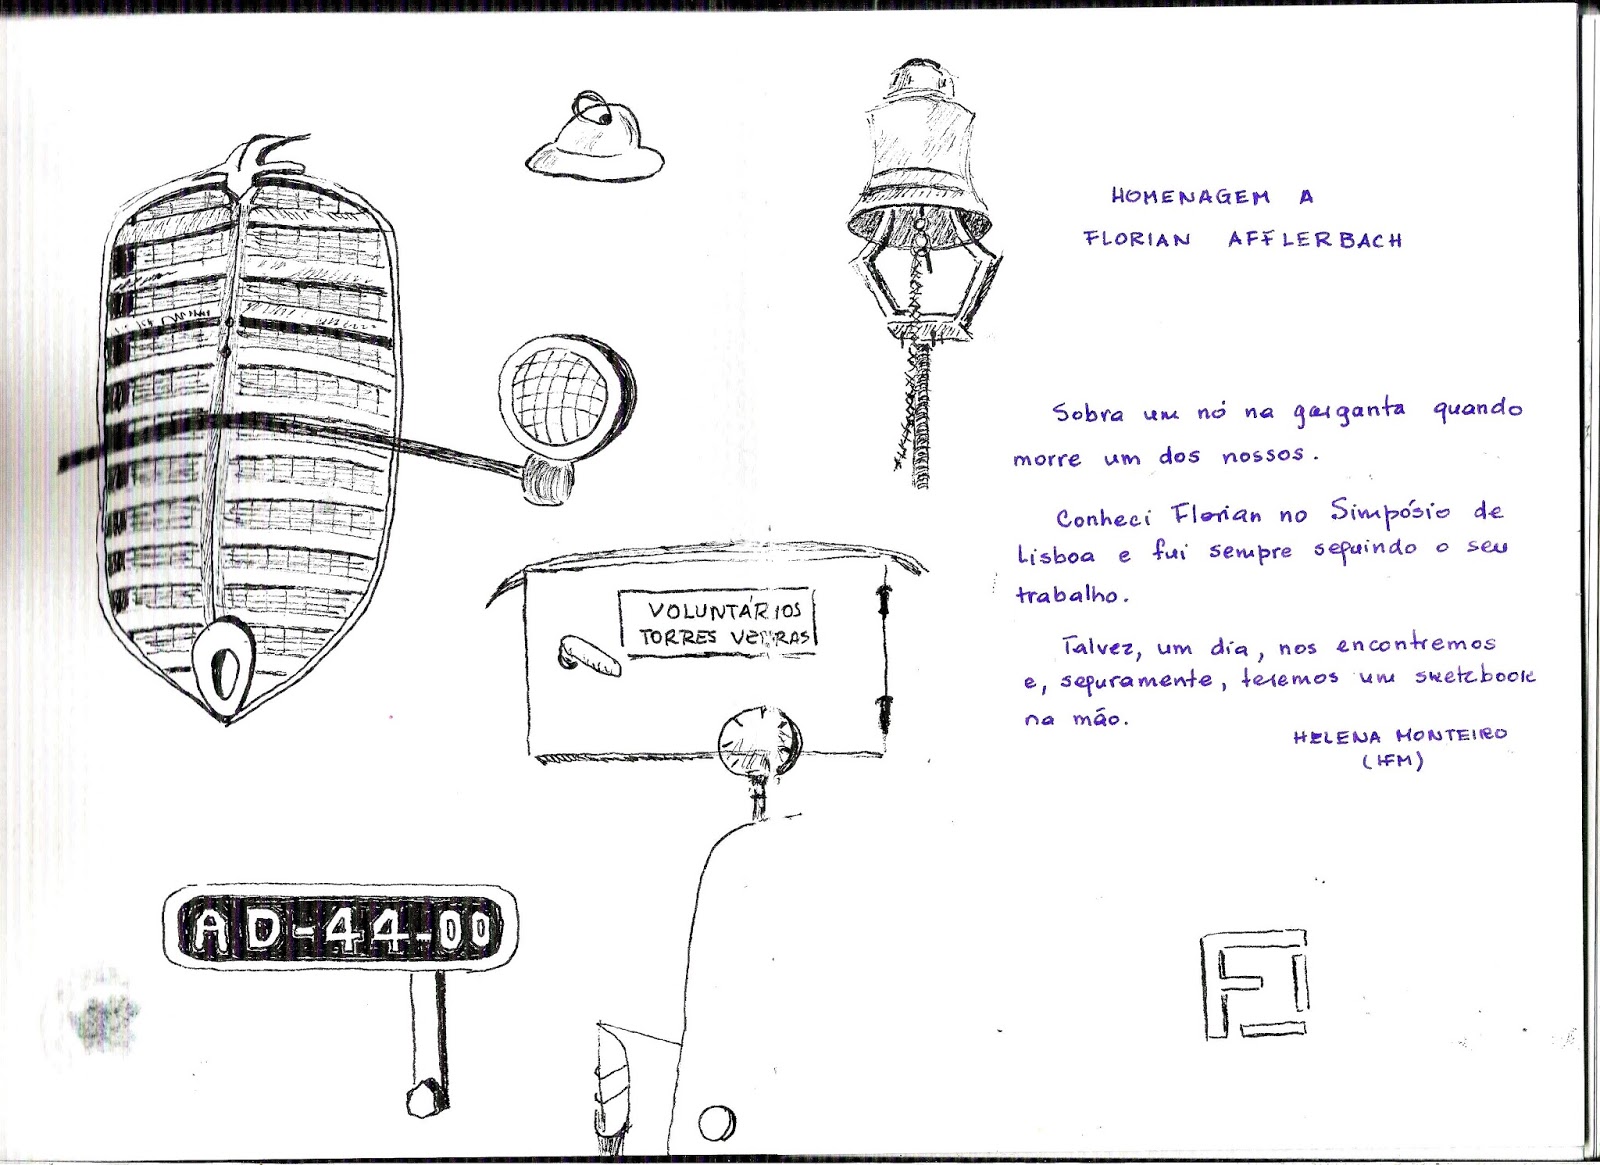 HOMENAGEM A
FLORIAN AFFLERBACH
Sobra um nó na garganta quando
morre um dos nossos.
Conheci Florian no Simpósio de
Lisboa e fui sempre seguindo o seu
trabalho.
Talvez, um dia, nos encontremos
e, seguramente, teremos um sketcbook
na mão.
HELENA MONTEIRO
(HFM)
VOLUNTÁRIOS
TORRES VEDRAS
AD-44-00